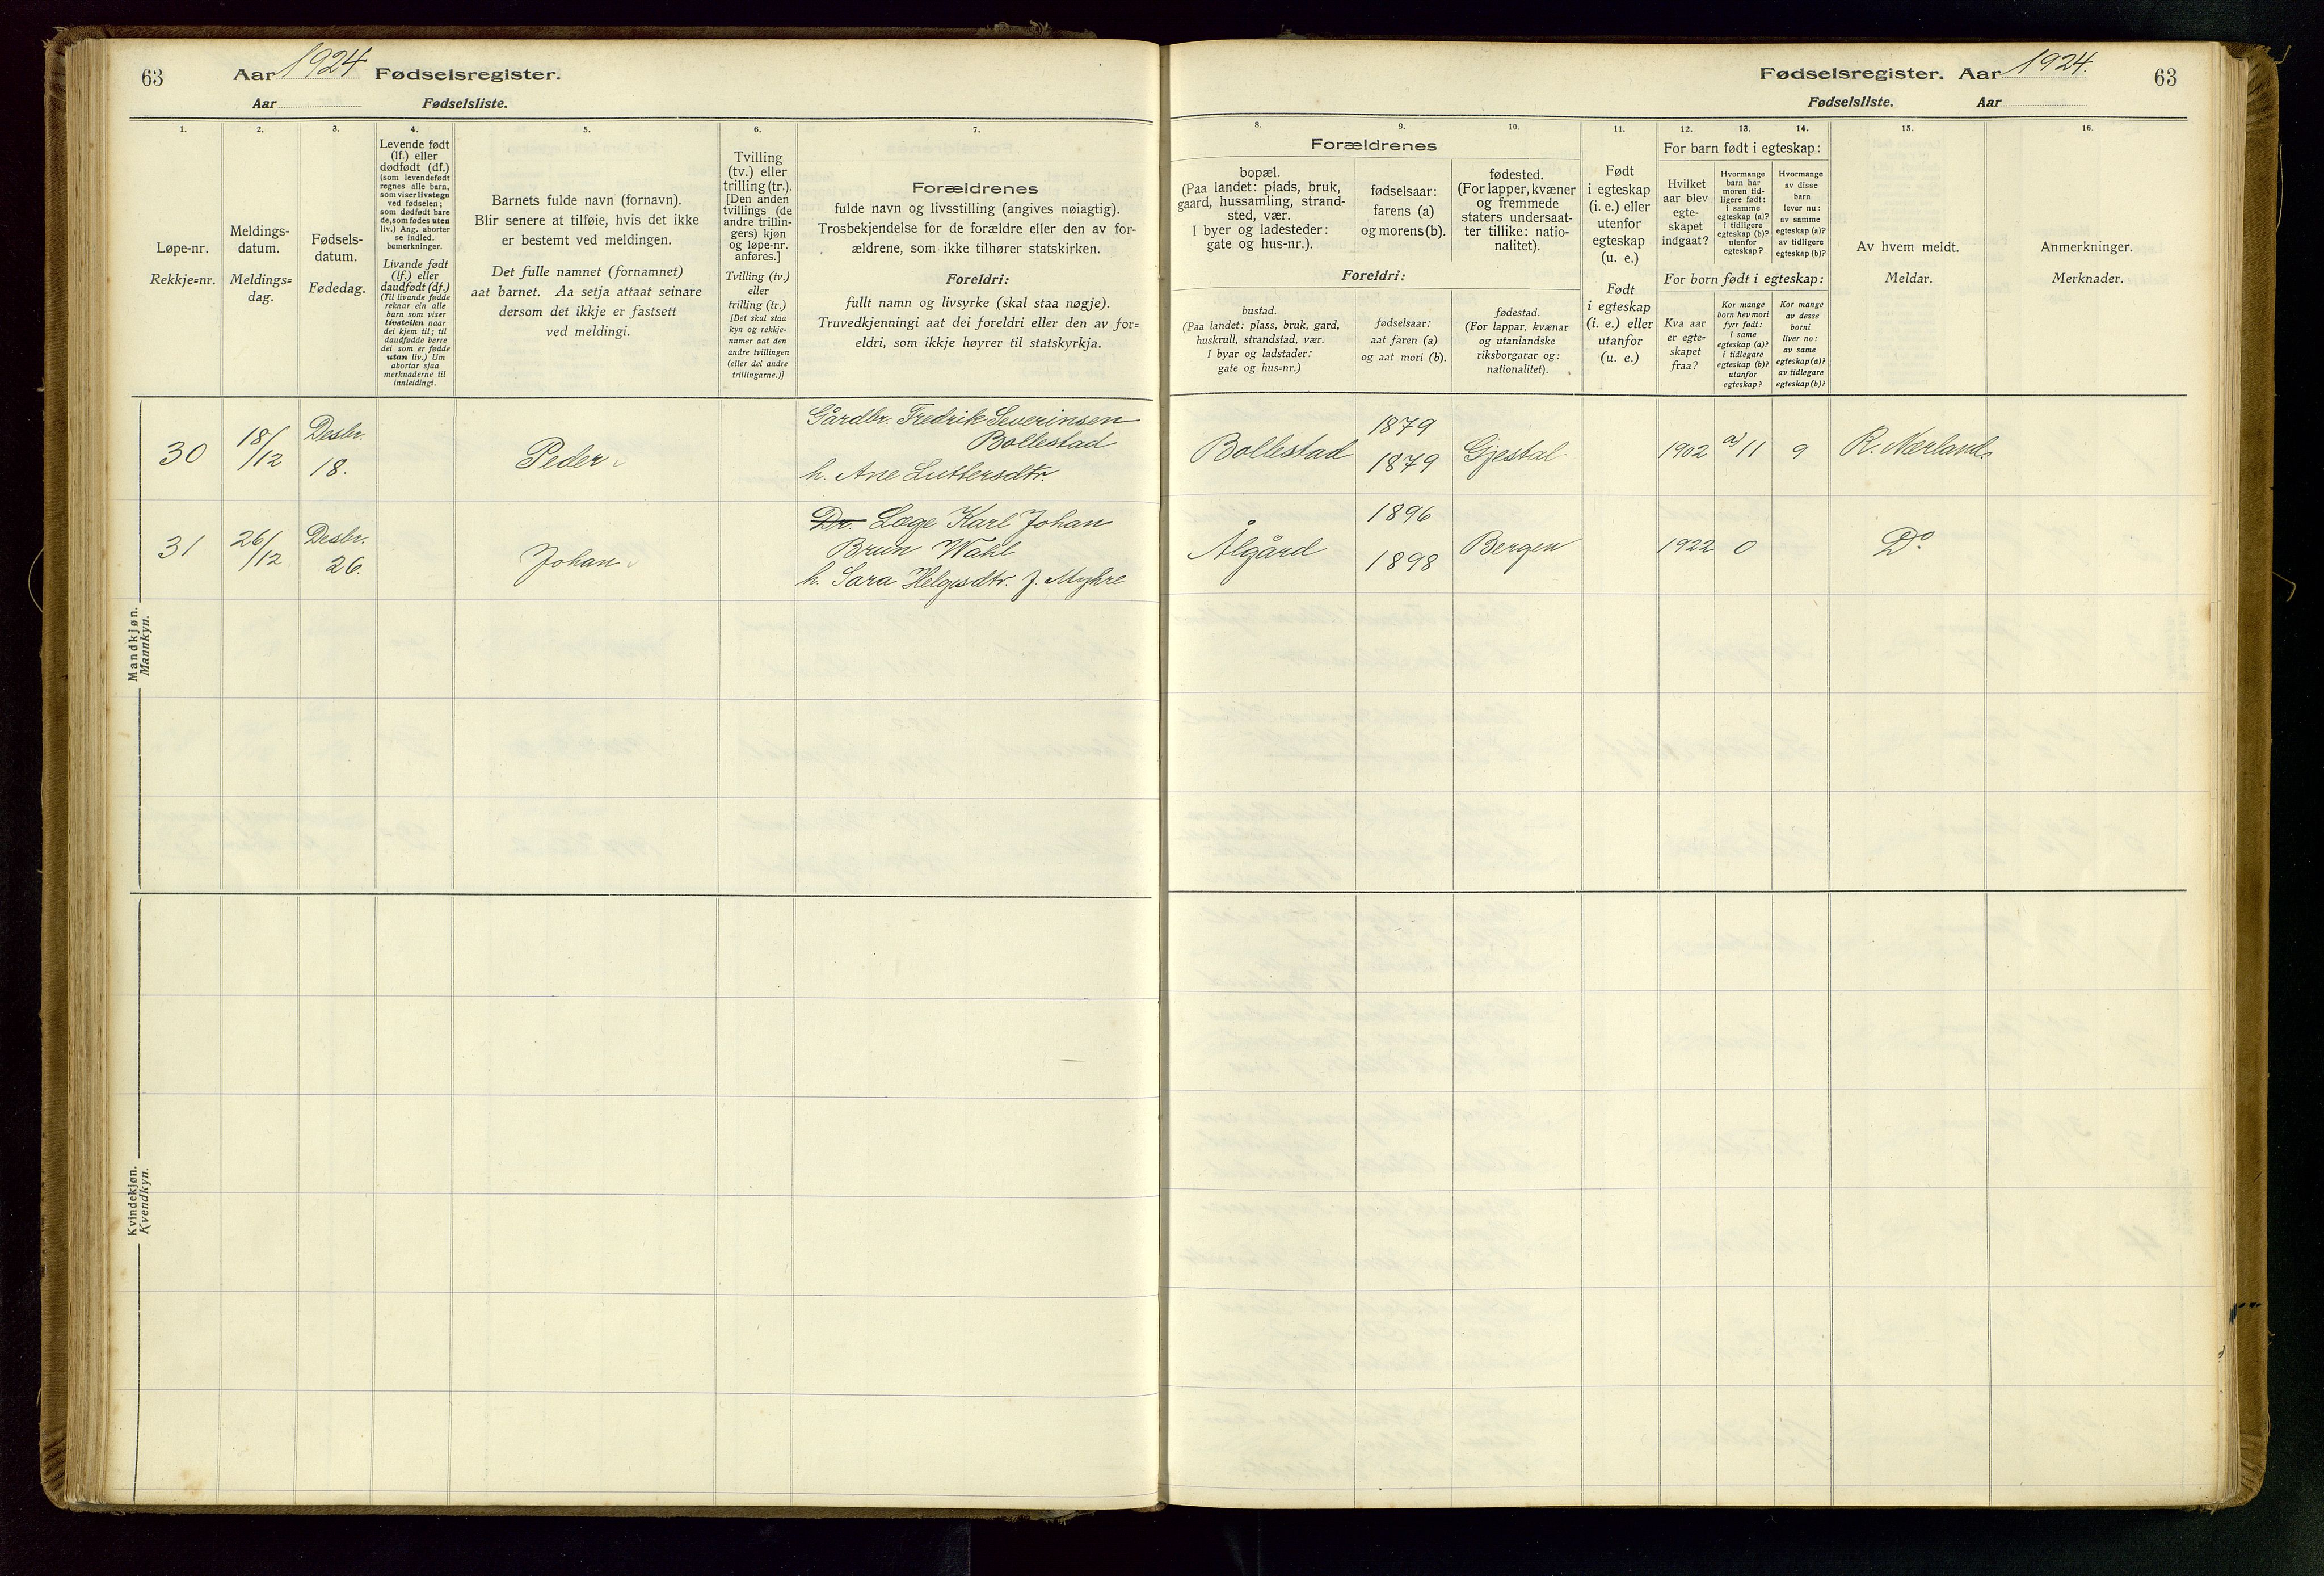 63 Aar 1924 Fødselsregister.
Aar Fødselsliste.
1.
Løpe-nr.
Rekkje=nr.
2.
Meldings-
datum.
Meldings=
dag.
3.
Fødsels-
datum.
Fødedag.
4.
Levende født
(lf.) eller
dødfødt (df.)
(som levendefødt
regnes alle barn,
som viser livstegn
ved fødselen;
som dødfødt bare
de, som fødes uten
liv.) Ang. aborter
se indled.
bemerkninger.
Livande født
(lf.) eller
daudfødt (df.)
(Til livande fødde
reknar ein alle
barn som viser
livsteikn naar
dei kjem til; til
daudfødde berre
dei som er fødde
utan liv.) Um
abortar sjaa
merknaderne til
innleidingi.
5.
Barnets fulde navn (fornavn).
Blir senere at tilføie, hvis det ikke
er bestemt ved meldingen.
Det fulle namnet (fornamnet)
aat barnet. Aa setja attaat seinare
dersom det ikkje er fastsett
ved meldingi.
6.
Tvilling
(tv.) eller
trilling (tr.).
[Den anden
tvillings (de
andre trillin-
gers) kjøn
og løpe-nr.
anføres.]
Tvilling (tv.)
eller
trilling (tr.)
[Det skal staa
kyn og rekkje-
numer aat den
andre tvillingen
(eller dei andre
trillingarne.)]
7.
Forældrenes
fulde navn og livsstilling (angives nøiagtig).
Trosbekjendelse for de forældre eller den av for-
ældrene, som ikke tilhører statskirken.
Foreldri:
fullt namn og livsyrke (skal staa nøgje).
Truvedkjenningi aat dei foreldri eller den av for=
eldri, som ikkje høyrer til statskyrkja.
Mandkjøn.
Mannkyn.
30 18/12 Desbr. 18. Peder
Gårdbr. Fredrik Severinsen
Bollestad
h. Ane Luttersdtr.
31 26/12 Desbr. 26. Johan
Dr. Læge Karl Johan
Brun Wahl
h. Sara Helgesdtr. f. Myhre
Kvindekjøn.
Kvendkyn.
Fødselsregister. Aar 1924. 63
Fødselsliste. Aar
8.
Forældrenes
bopæl.
(Paa landet: plads, bruk,
gaard, hussamling, strand-
sted, vær.
I byer og ladesteder:
gate og hus-nr.).
Foreldri:
bustad.
(Paa landet: plass, bruk, gard,
huskrull, strandstad, vær.
I byar og ladstader:
gate og hus=nr.)
9.
fødselsaar:
farens (a)
og morens (b).
fødselsaar:
aat faren (a)
og aat mori (b).
10.
fødested.
(For lapper, kvæner
og fremmede
staters undersaat-
ter tillike: natio-
nalitet).
fødestad.
(For lappar, kvænar
og utanlandske
riksborgarar og:
nationalitet).
11.
Født
i egteskap
(i. e.) eller
utenfor
egteskap
(u. e.)
Født
i egteskap
(i. e.) eller
utanfor
(u. e.)
12.
13.
14.
For barn født i egteskap:
Hvilket
aar blev
egte-
skapet
indgaat?
Hvormange
barn har
moren tid-
ligere født:
i samme
egteskap (a)?
i tidligere
egteskap (b)?
utenfor
egteskap?
Hvormange
av disse
barn
lever nu:
av samme
egteskap (a)?
av tidligere
egteskap (b)?
For born født i egteskap:
Kva aar
er egte=
skapet
fraa?
Kor mange
born hev mori
fyrr født:
i same
egteskap (a)?
i tidlegare
egteskap (b)?
utanfor
egteskap?
Kor mange
av desse
borni
liver no:
av same
egteskap (a)?
av tidlegare
egteskap (b)?
15.
Av hvem meldt.
Meldar.
16.
Anmerkninger.
Merknader.
Bollestad 1879 1879 Gjestal 1902 a) 11 9 R. Nerland.
Ålgård 1896 1898 Bergen 1922 0 Do